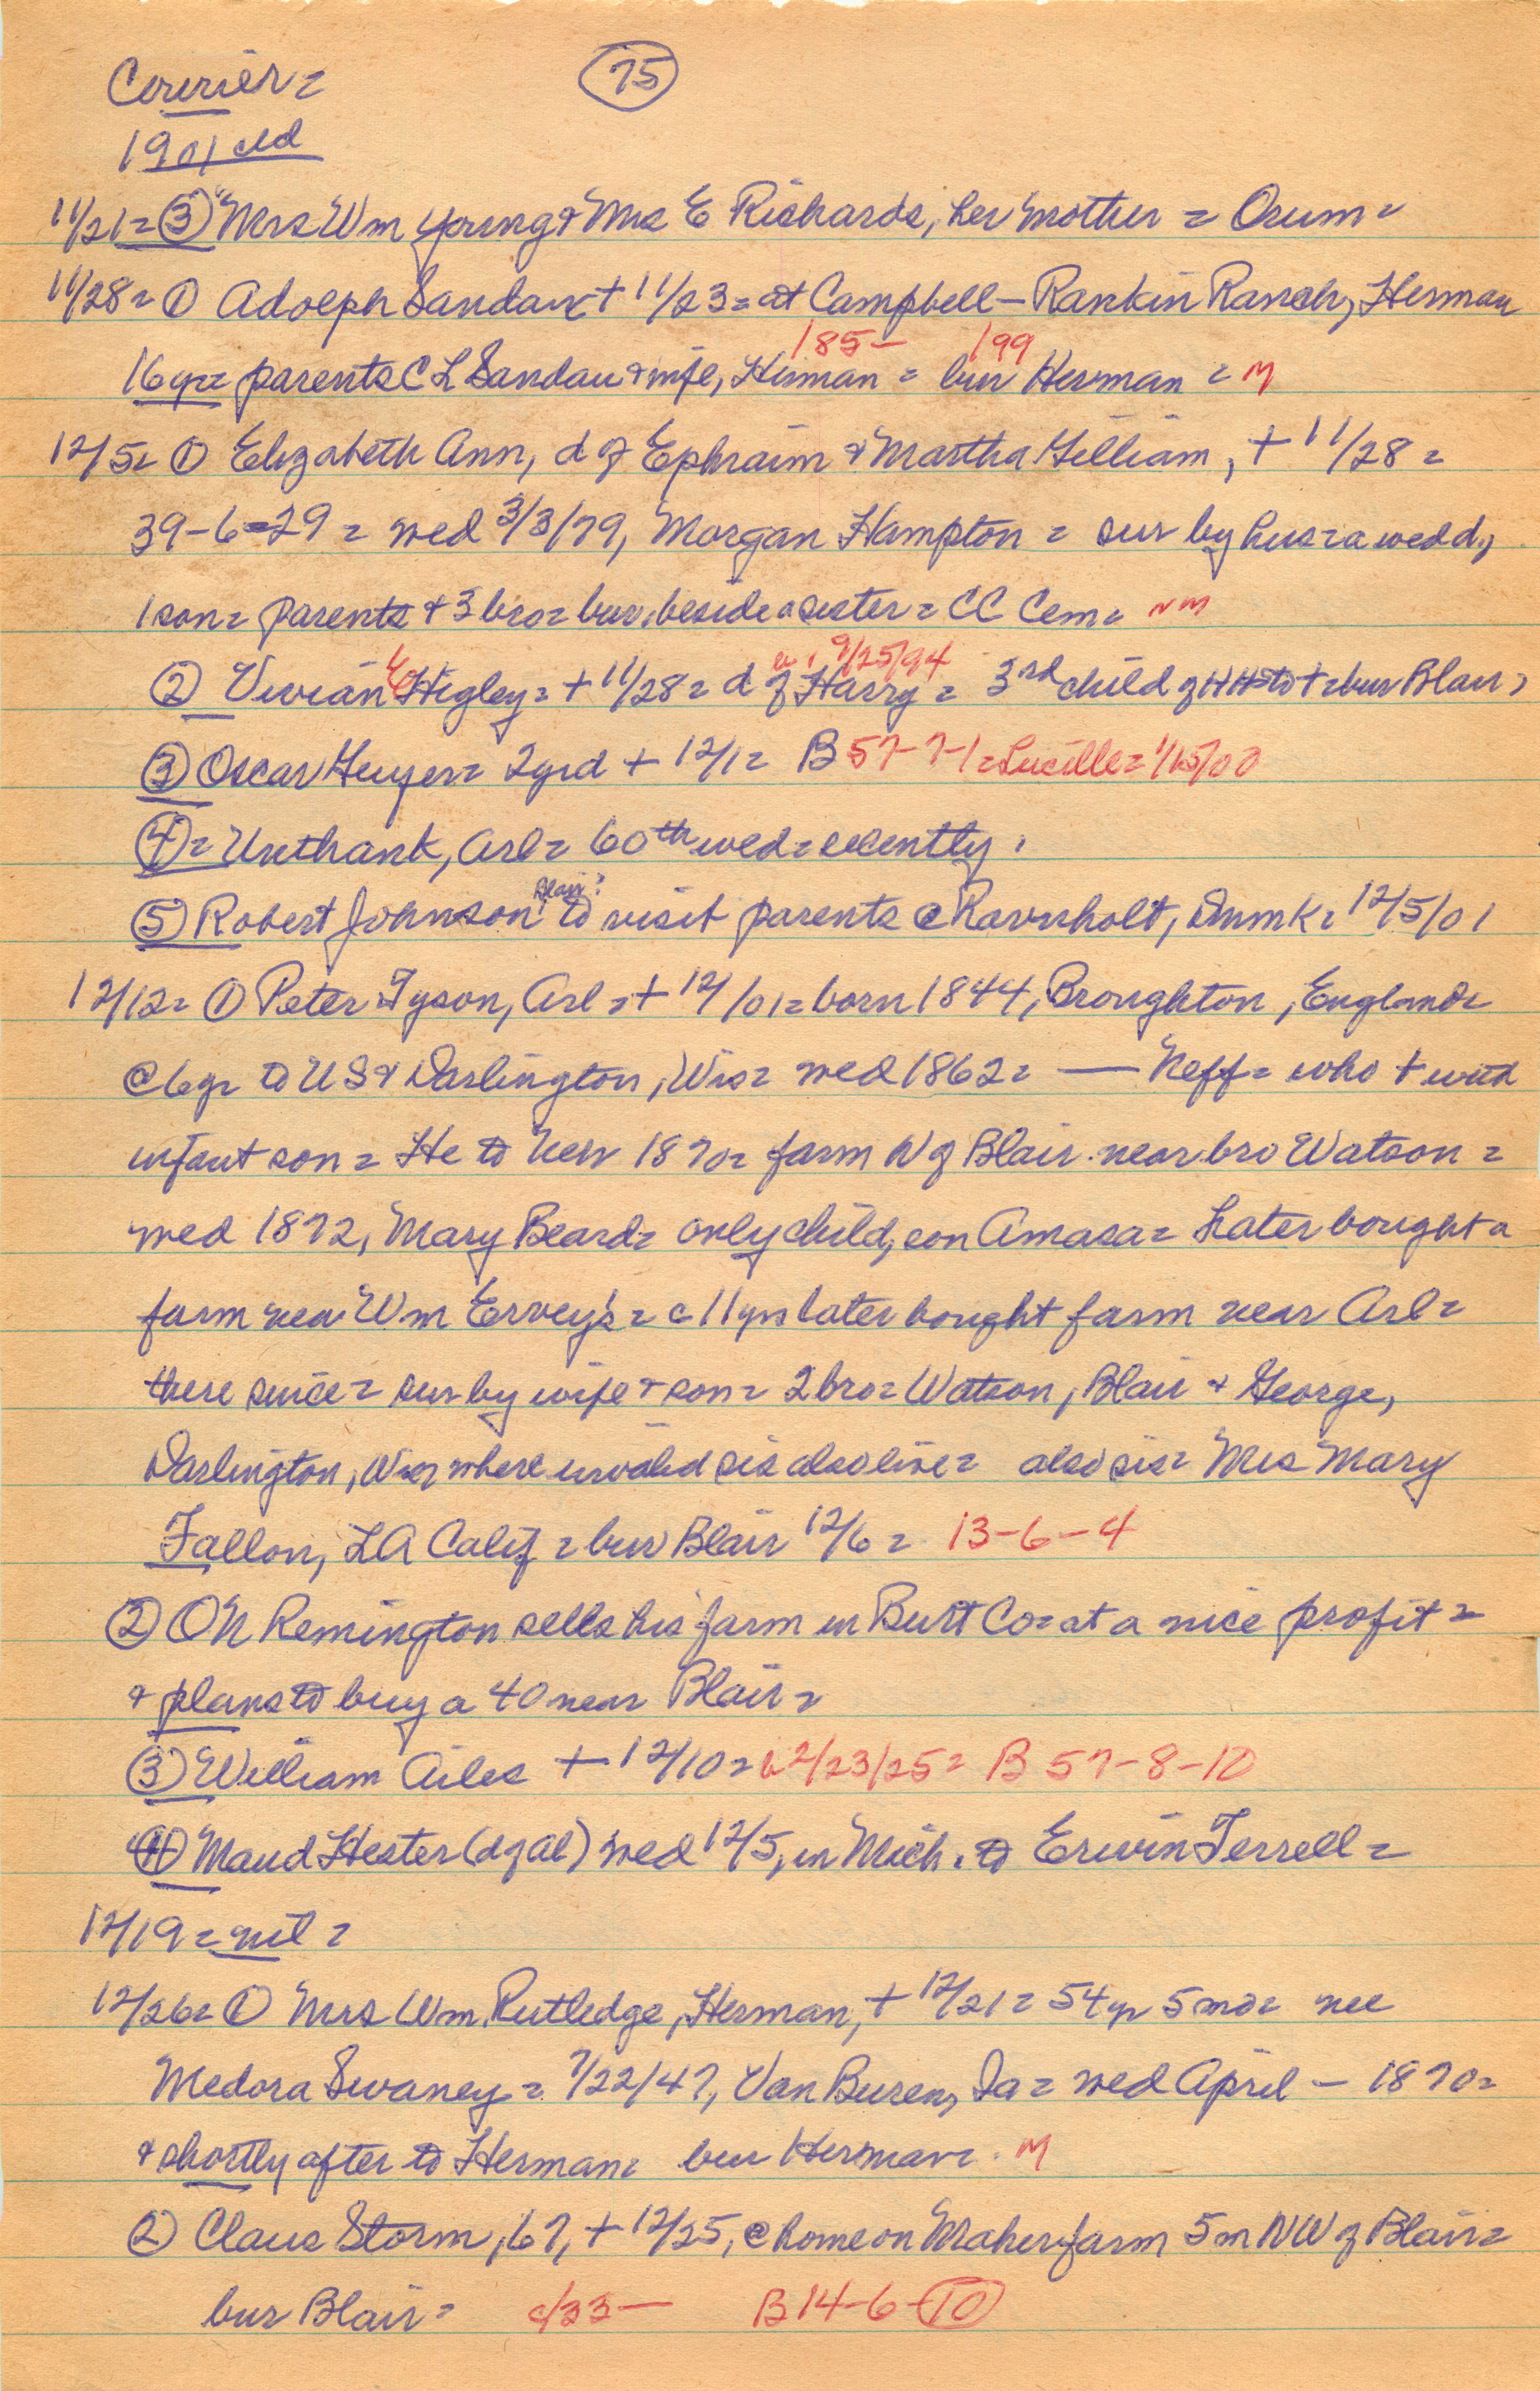 Courier =
75
1901 cld
11/21 = ③ Mrs Wm Young & Mrs E Richards, her mother = Orum =
11/28 = ① Adolph Sandau + 11/23 = at Campbell - Rankin Ranch, Herman
185- 199
16 yr = parents C L Sandau & wife, Herman = bur Herman = M
12/5 = ① Elizabeth Ann, d of Ephraim & Martha Gilliam, + 11/28 =
39-6-29 = wed 3/3/79, Morgan Hampton = sur by hus = a wed d,
1 son = parents & 3 bro = bur. beside a sister = CC Cem = NM
9/25/94
② Vivian E Higley = + 11/28 = d of Harry = 3rd child of HH to + = bur Blair,
③ Oscar Guyer = 2yrd + 12/1 = B 57-7-1 = Lucille = 1/15/00
④ = Unthank, Arl = 60th wed = recently.
Blair?
⑤ Robert Johnson to visit parents @ Ravnholt, Dnmk = 12/5/01
12/12 = ① Peter Tyson, Arl = + 12/01 = born 1844, Broughton, England =
@ 6 yr to US & Darlington, Wis = wed 1862 = — Neff = who + with
infant son = He to Neb 1870 = farm N of Blair near bro Watson =
wed 1872, Mary Beard = only child, son Amasa = Later bought a
farm near Wm Ervey's = c 11 yrs later bought farm near Arl =
there since = sur by wife & son = 2 bro = Watson, Blair & George,
Darlington, Wis = where invalid sis also live = also sis = Mrs Mary
Fallon, LA Calif = bur Blair 12/6 = 13-6-4
② ON Remington sells his farm in Burt Co = at a nice profit =
& plans to buy a 40 near Blair =
③ William Ailes + 12/10 = b 2/23/25 = B 57-8-10
④ Maud Hester (d of Al) wed 12/5, in Mich. to Erwin Terrell =
12/19 = nil =
12/26 = ① Mrs Wm Rutledge, Herman, + 12/21 = 54 yr 5 mo = nee
Medora Swaney = 7/22/47, Van Buren, Ia = wed April - 1870 =
& shortly after to Herman = bur Herman = M
② Claus Storm, 67, + 12/25, @ home on Maher farm 5 m NW of Blair =
bur Blair = c/33 — B 14-6-10